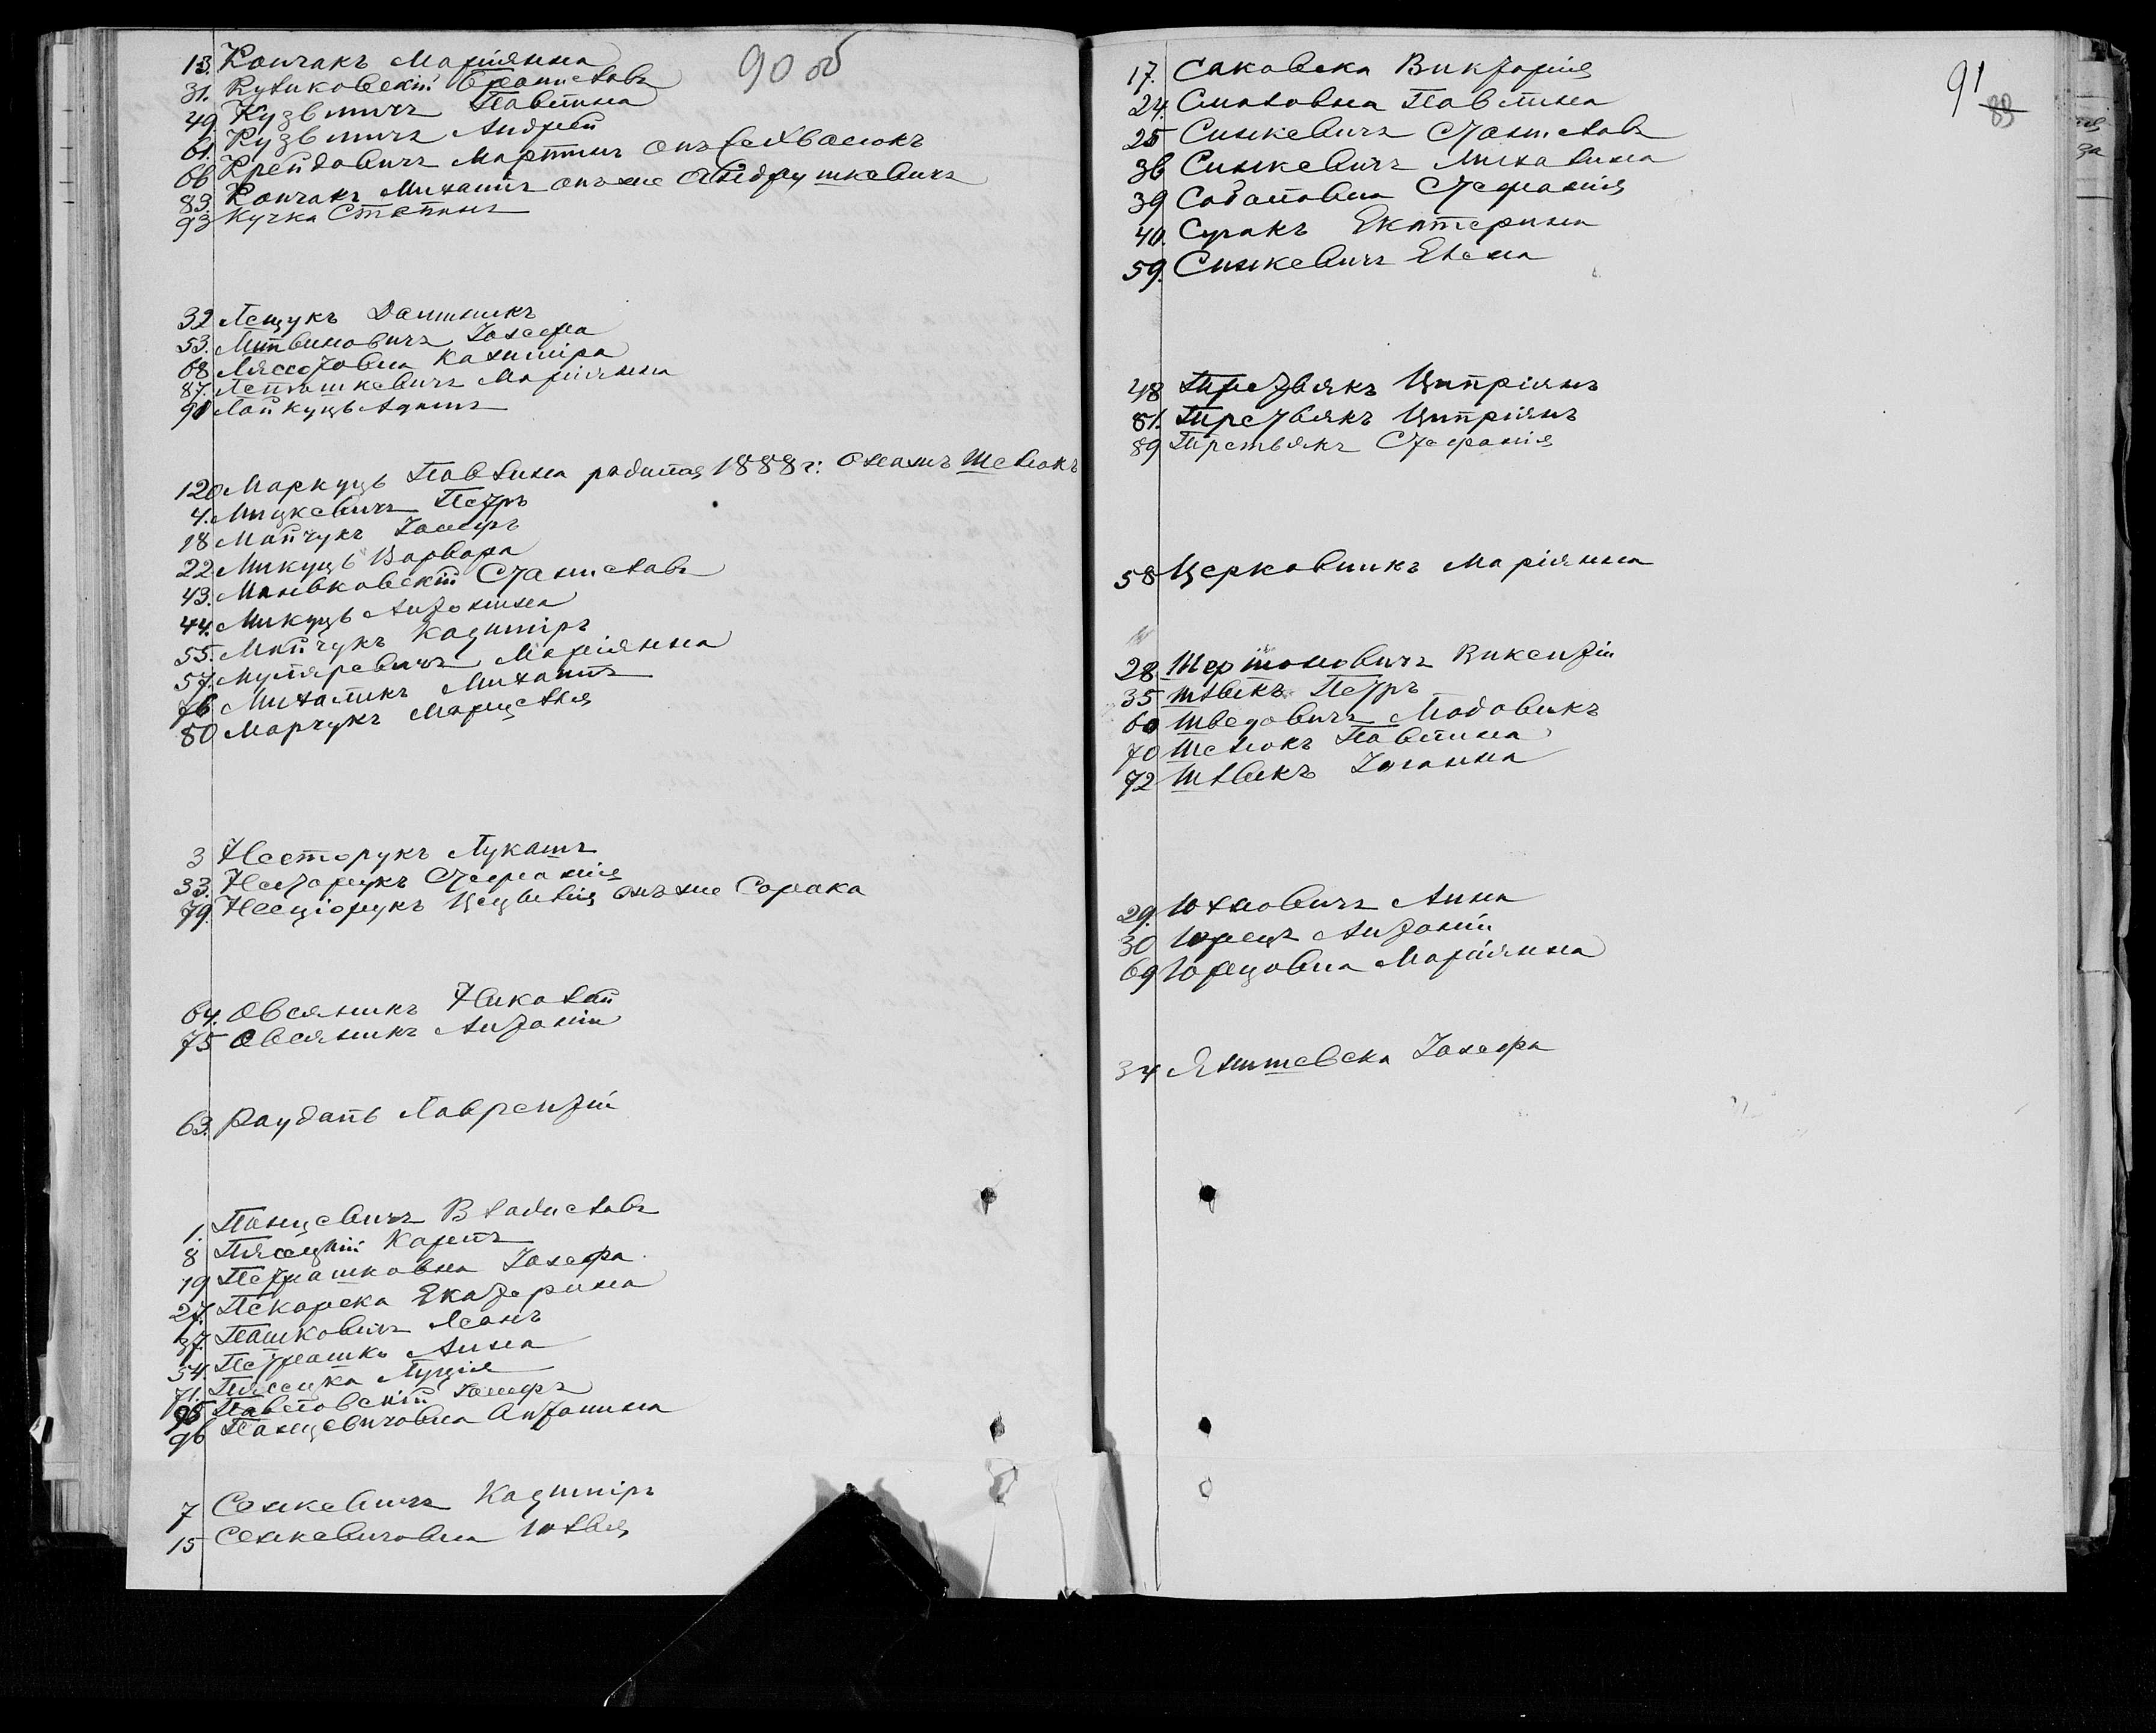 90 об
13. Кончакъ Маріянна
31. Куликовскій Брониславъ
49. Кузьмичъ Павлина
61. Кузьмичъ Андрей
66 Крейдовичъ Мартинъ онъ
83. Кончакъ Михаилъ онъ же Андрушкевичъ
93 Кучка Степанъ
32 Лещукъ Доминикъ
53. Литвиновичъ Іозефа
68. Лясотовна Казимира
87. Лепяшкевичъ Маріянна
91 Лайкуць Адамъ
120 Маркуць Павлина родилась 1888 г:
4. Мицкевичъ Петръ
18 Майчукъ Іосифъ
22. Микуць Варвара
43. Маньковскій Станиславъ
44. Микуць Антонина
55. Майчукъ Казимиръ
57. Муляревичъ Маріянна
76 Михаликъ Михаилъ
80 Марчукъ Марцеля
3 Несторукъ Лукашъ
33. Несторукъ Стефанія
79. Несціорукъ Цецилія онъ же Сорока
64. Овсяникъ Николай
75 Овсяникъ Антоній
63. Раудань Лаврентій
1. Панцевичъ Владиславъ
8 Пясецкій Каролъ
19 Петрашковна Іозефа
27. Пекарска Екатерина
37. Пашковичъ Леонъ
54. Петрашко Анна
71. Пясецка Луція
95 Павловскій Іосифъ
96 Панцевичовна Антонина
7 Сенкевичъ Казиміръ
15 Сенкевичовна Юлія
91
89
17. Саковска Викторія
24. Павлина
25 Синкевичъ Станиславъ
36 Синкевичъ Михалина
39 Соболовна Стефанія
40. Суракъ Екатерина
59. Синкевичъ Елена
48 Третьякъ Ципріянъ
81. Третьякъ Ципріянъ
89 Третьякъ Стефанія
58 Церковникъ Маріянна
28. Шермоновичъ Викентій
35 Шлыкъ Петръ
60 Шведовичъ Людовикъ
70 Шелюкъ Павлина
72 Шлыкъ Іоганна
29. Юхновичъ Анна
30 Юрецъ Антоній
69 Юрецовна Маріянна
34 Янишевска Іозефа